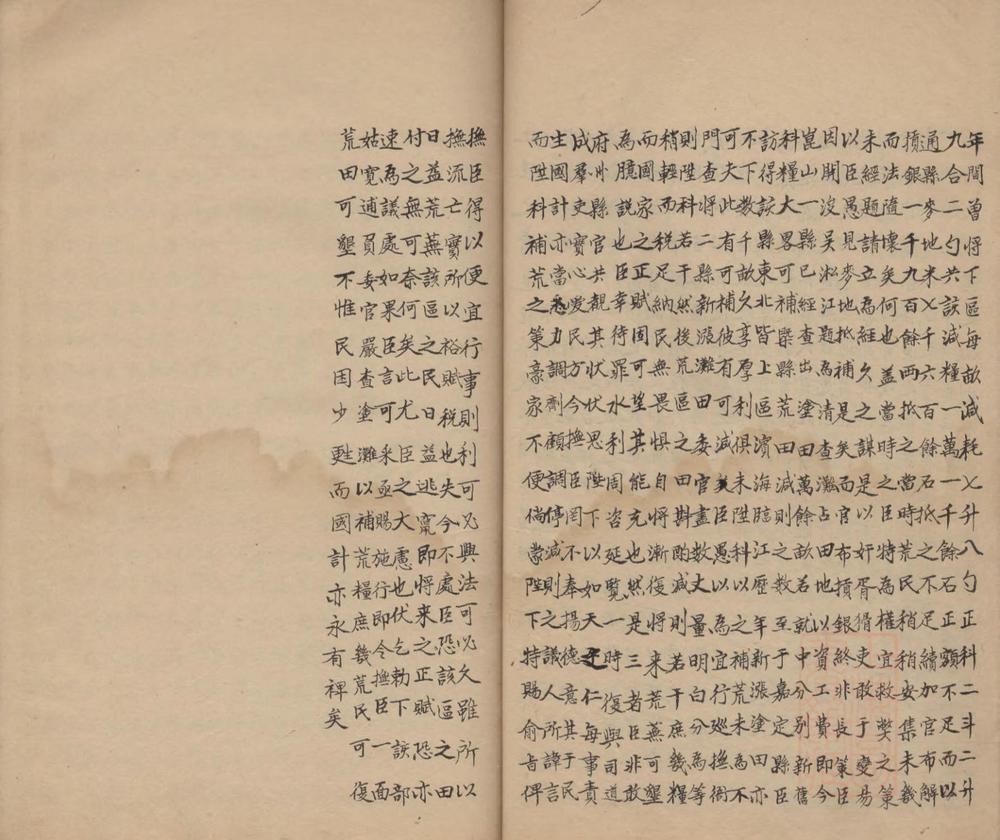 年間曾將下區每畝減耗七升八勺正科二斗二升
九合二勺共該減糧一萬一千餘石正額不足而以
通縣麥地米七千六百餘石抵之不足續加官布解
損銀一千九百餘兩抵之當時荒民稍稍安集未幾
而法隨壞矣何也蓋當時之臣特為權宜救獘之策
未經題請立為經久之謀是以奸胥猾吏敢于變易
以臣愚見麥地抵補是矣而官布損銀終非長策臣
因開沒吳淞江題為清查灘占田地以資工費即今
崑山一縣已經查出塗田萬餘畝若就中分別新舊
科糧大畧可補槩縣荒田減則之數至于嘉定縣亦
訪得該縣東北皆上區濱海臨江歷年新漲塗田臣
不下数千故久享厚利俱未陞科以之補荒未為不
可夫此有可補彼有可減矣臣愚以為宜行廵撫衙
門查將二縣新漲灘田委官盡數丈量明白分為等
則陞科若干然後荒區之田斟酌減則若干庶幾糧
稍輕而税足納民無畏懼自將漸復將来荒蕪可墾
而國家之正賦固可望其能充也然是三者臣非敢
為臆説也臣幸待罪水利周咨延覽一時復與司道
府州縣官共觀其狀伏思陞下以如天之仁每事責
成羣吏實心愛民方今撫臣罔不奉揚德意其于民
生國計亦當悉力調劑顧調停減則之議人所諱言
而陞科補荒之策豪家不便倘蒙陞下特賜俞旨俾
撫臣得以便宜行事則利可必興法可必久雖所以
撫流亡實所以裕賦税也失今不處臣恐該區之田
日益荒蕪該區之民日益逃竄即將来之正賦恐亦
付之無可奈何矣此尤臣之大慮也伏乞勅下該部
速為議處如果臣言可采亟賜施行即令撫臣一面
姑寛逋負委官嚴查塗灘以補荒糧庶幾荒民可復
荒田可墾不惟民困少甦而國計亦永有裨矣